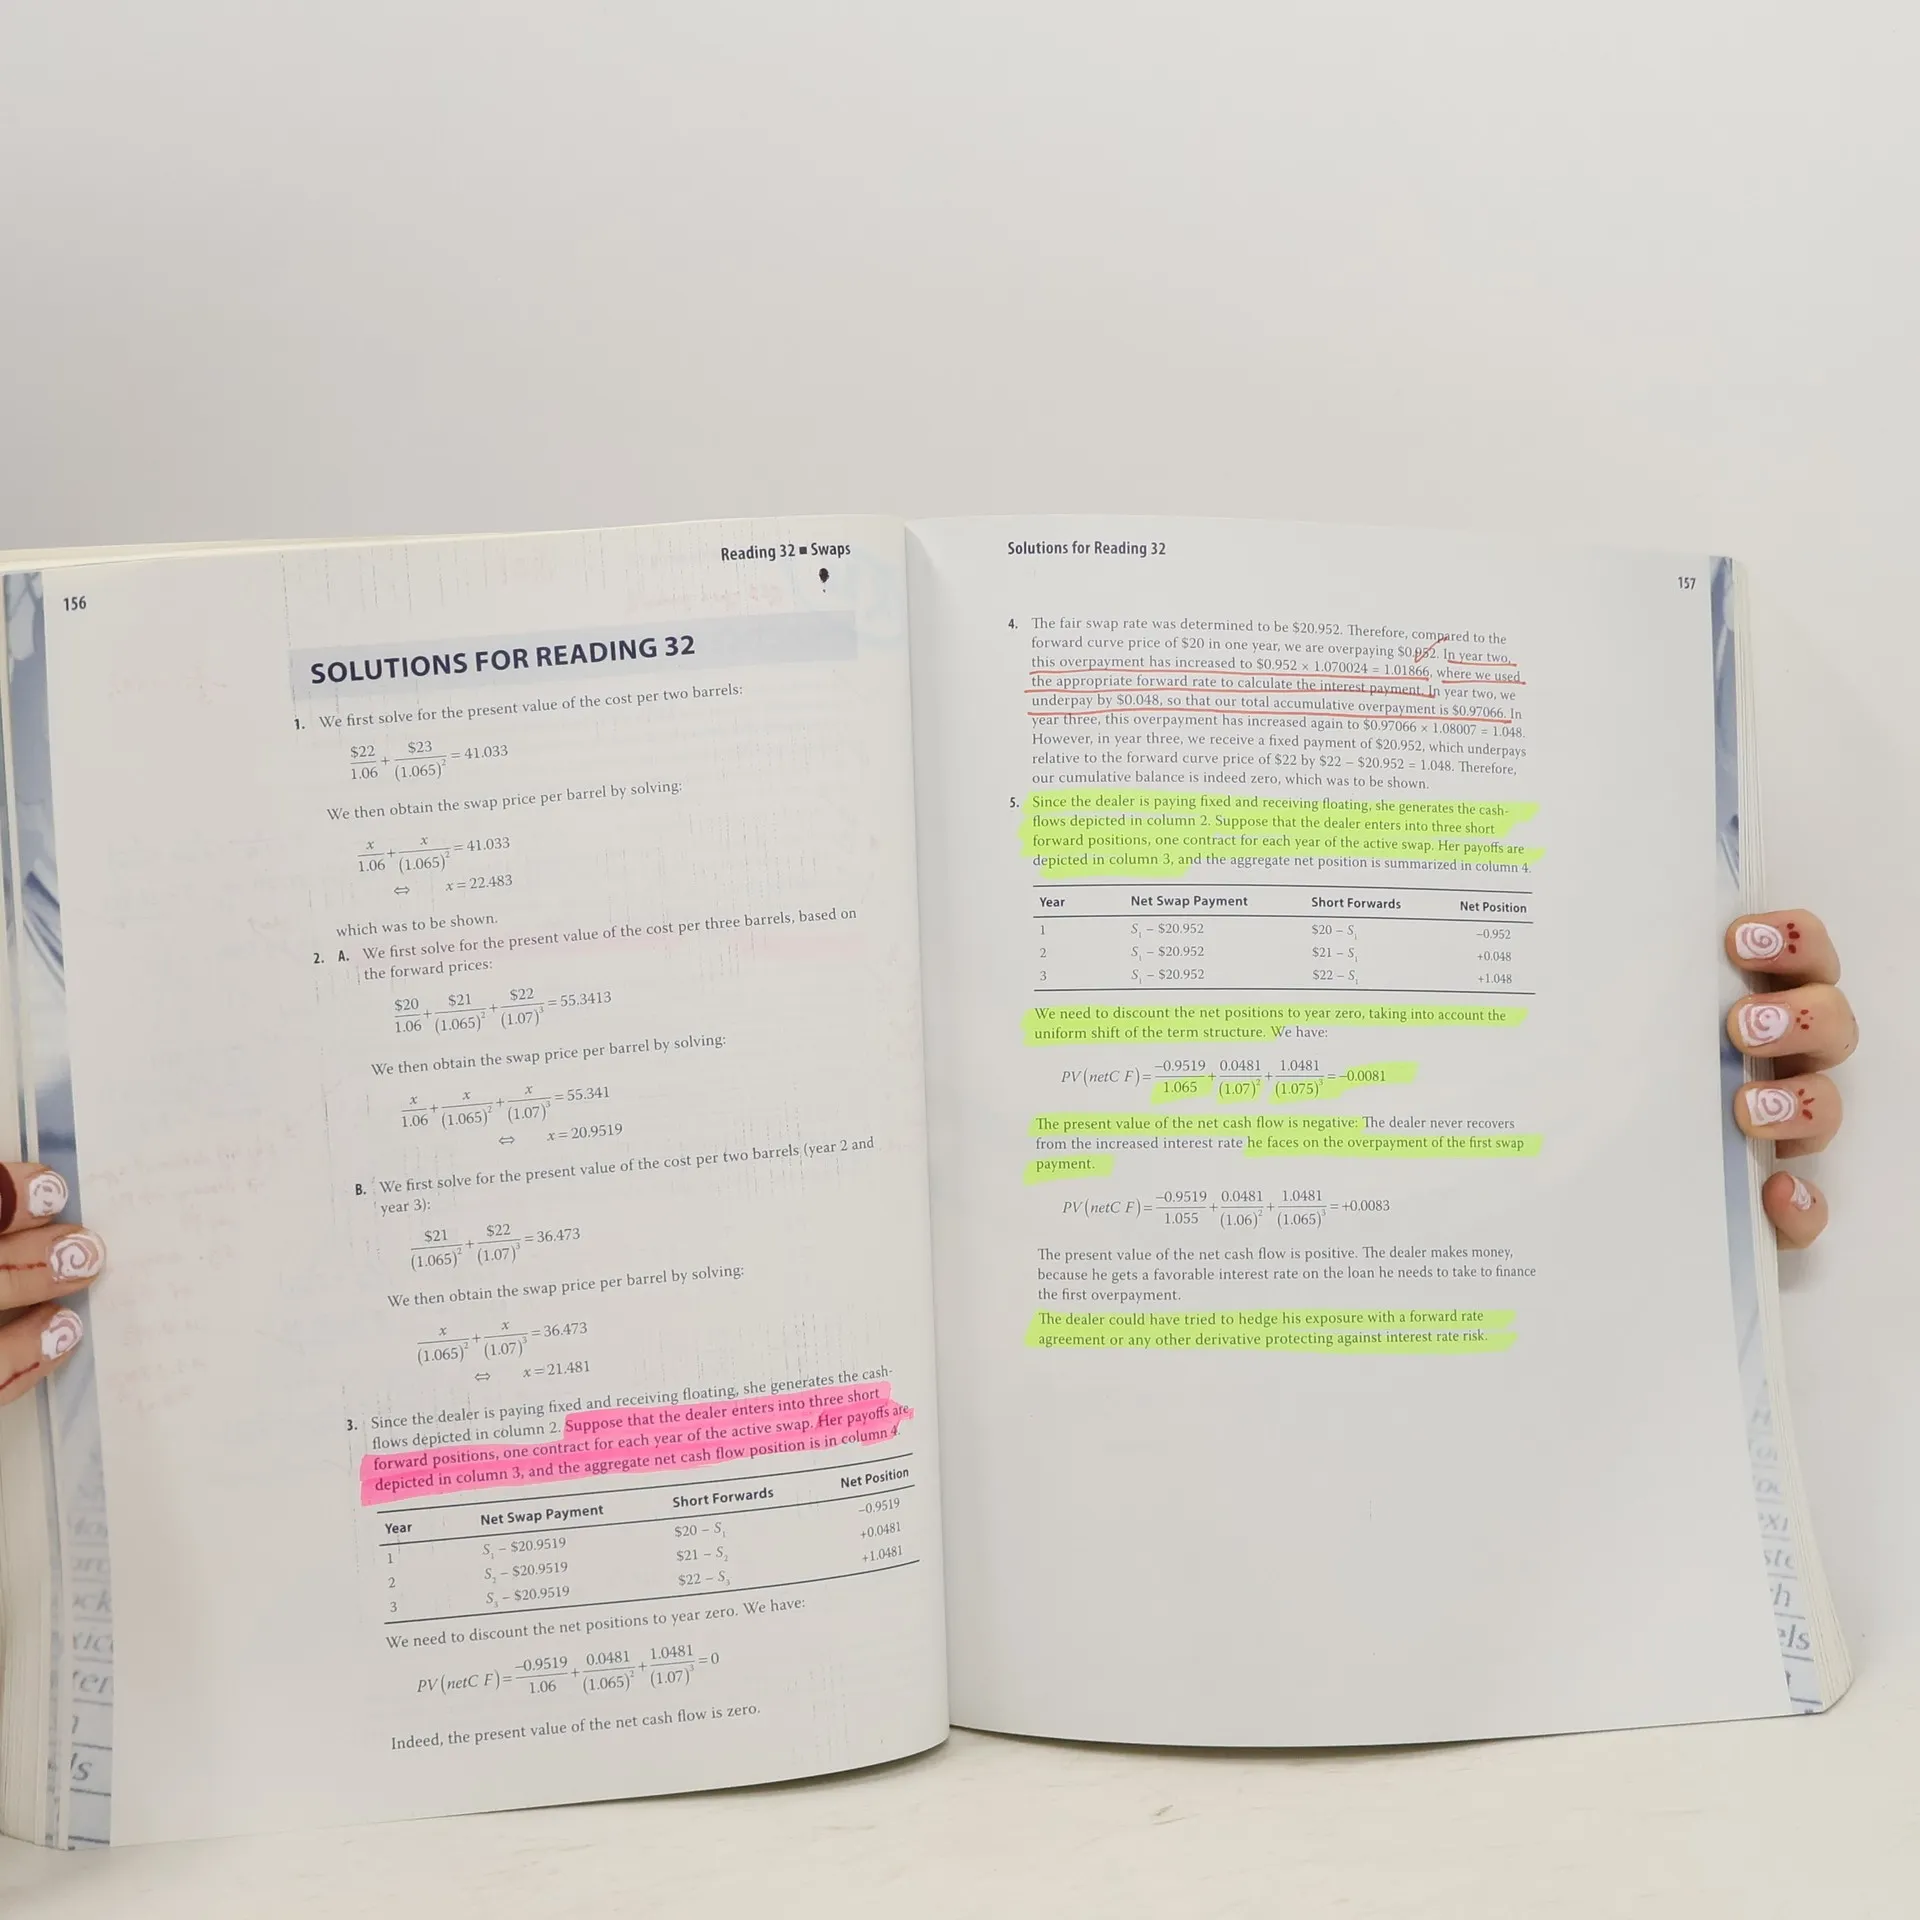 156
Reading 32 ■ Swaps
SOLUTIONS FOR READING 32
1. We first solve for the present value of the cost per two barrels:
$22/1.06 + $23/(1.065)² = 41.033
We then obtain the swap price per barrel by solving:
x/1.06 + x/(1.065)² = 41.033
⇔ x = 22.483
which was to be shown.
2. A. We first solve for the present value of the cost per three barrels, based on
the forward prices:
$20/1.06 + $21/(1.065)² + $22/(1.07)³ = 55.3413
We then obtain the swap price per barrel by solving:
x/1.06 + x/(1.065)² + x/(1.07)³ = 55.341
⇔ x = 20.9519
B. We first solve for the present value of the cost per two barrels (year 2 and
year 3):
$21/(1.065)² + $22/(1.07)³ = 36.473
We then obtain the swap price per barrel by solving:
x/(1.065)² + x/(1.07)³ = 36.473
⇔ x = 21.481
3. Since the dealer is paying fixed and receiving floating, she generates the cash-
flows depicted in column 2. Suppose that the dealer enters into three short
forward positions, one contract for each year of the active swap. Her payoffs are
depicted in column 3, and the aggregate net cash flow position is in column 4.
Year Net Swap Payment Short Forwards Net Position
1 S₁ – $20.9519 $20 – S₁ –0.9519
2 S₂ – $20.9519 $21 – S₂ +0.0481
3 S₃ – $20.9519 $22 – S₃ +1.0481
We need to discount the net positions to year zero. We have:
PV(netC F) = –0.9519/1.06 + 0.0481/(1.065)² + 1.0481/(1.07)³ = 0
Indeed, the present value of the net cash flow is zero.
Solutions for Reading 32
157
4. The fair swap rate was determined to be $20.952. Therefore, compared to the
forward curve price of $20 in one year, we are overpaying $0.952. In year two,
this overpayment has increased to $0.952 × 1.070024 = 1.01866, where we used
the appropriate forward rate to calculate the interest payment. In year two, we
underpay by $0.048, so that our total accumulative overpayment is $0.97066. In
year three, this overpayment has increased again to $0.97066 × 1.08007 = 1.048.
However, in year three, we receive a fixed payment of $20.952, which underpays
relative to the forward curve price of $22 by $22 – $20.952 = 1.048. Therefore,
our cumulative balance is indeed zero, which was to be shown.
5. Since the dealer is paying fixed and receiving floating, she generates the cash-
flows depicted in column 2. Suppose that the dealer enters into three short
forward positions, one contract for each year of the active swap. Her payoffs are
depicted in column 3, and the aggregate net position is summarized in column 4.
Year Net Swap Payment Short Forwards Net Position
1 S₁ – $20.952 $20 – S₁ –0.952
2 S₁ – $20.952 $21 – S₁ +0.048
3 S₁ – $20.952 $22 – S₁ +1.048
We need to discount the net positions to year zero, taking into account the
uniform shift of the term structure. We have:
PV(netC F) = –0.9519/1.065 + 0.0481/(1.07)² + 1.0481/(1.075)³ = –0.0081
The present value of the net cash flow is negative: The dealer never recovers
from the increased interest rate he faces on the overpayment of the first swap
payment.
PV(netC F) = –0.9519/1.055 + 0.0481/(1.06)² + 1.0481/(1.065)³ = +0.0083
The present value of the net cash flow is positive. The dealer makes money,
because he gets a favorable interest rate on the loan he needs to take to finance
the first overpayment.
The dealer could have tried to hedge his exposure with a forward rate
agreement or any other derivative protecting against interest rate risk.